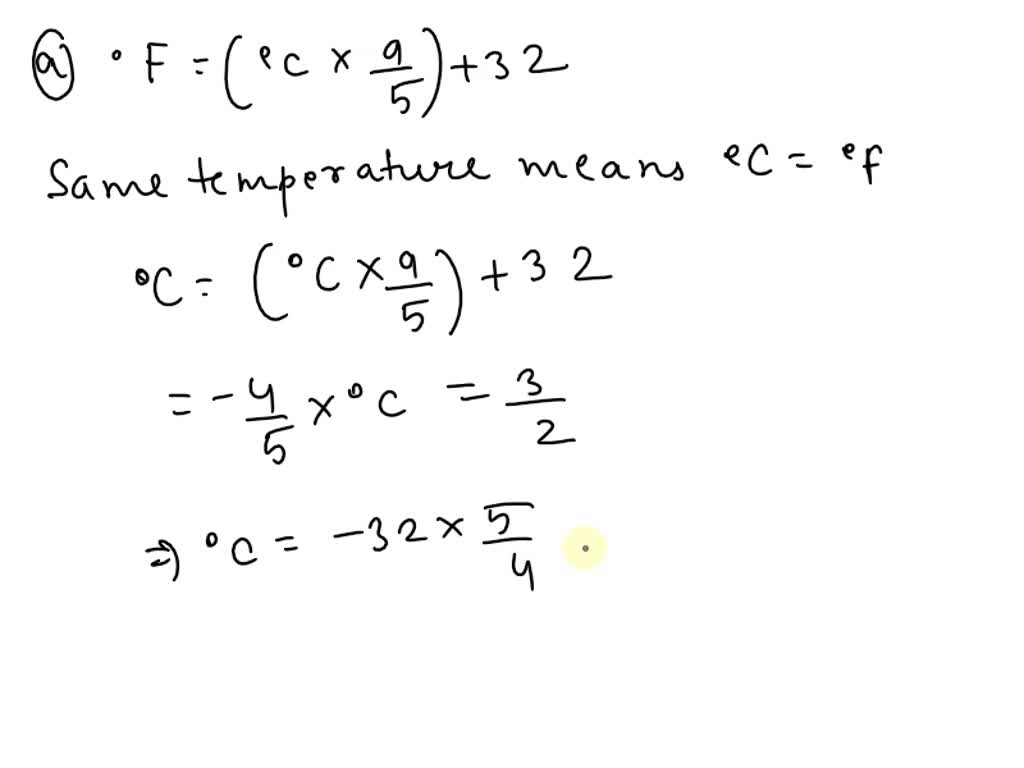 (a) °F = (°C × 9/5) + 32
Same temperature means °C = °f
°C = (°C × 9/5) + 32
= -4/5 × °C = 3/2
⇒ °C = -32 × 5/4